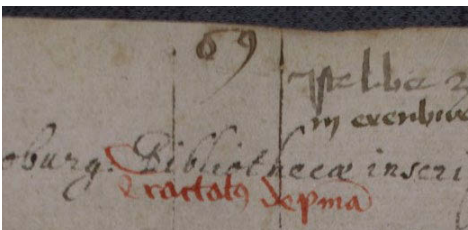 69
in erenbur
oburg. Bibliothecæ inscri
Tractatꝰ de pma